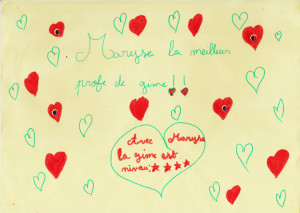 Maryse la meilleur
profe de gime !!
Avec Maryse
la gime est
nivau: